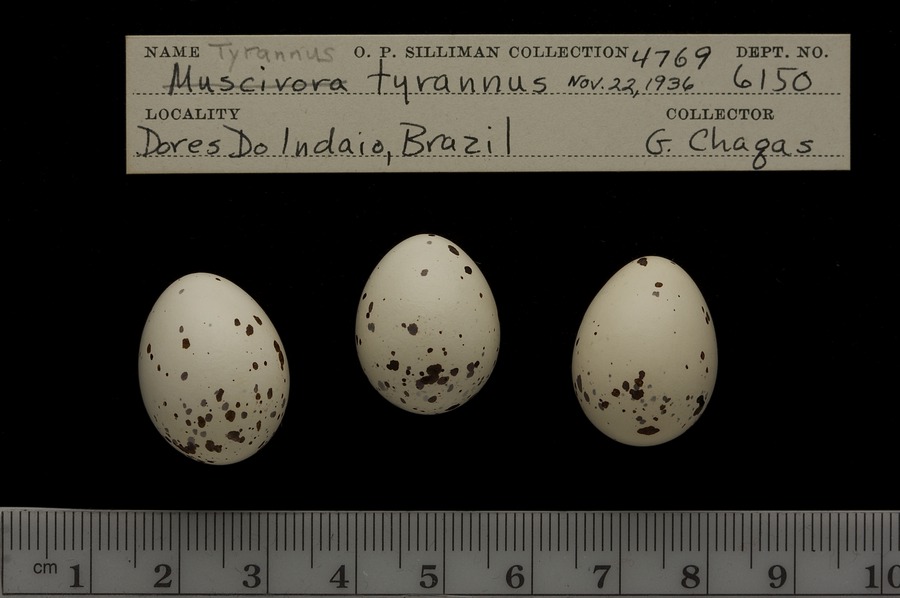 NAME Tyrannus O. P. SILLIMAN COLLECTION 4769 DEPT. NO.
Muscivora tyrannus Nov. 22, 1936 6150
LOCALITY COLLECTOR
Dores Do Indaio, Brazil G. Chagas
cm 1 2 3 4 5 6 7 8 9 10